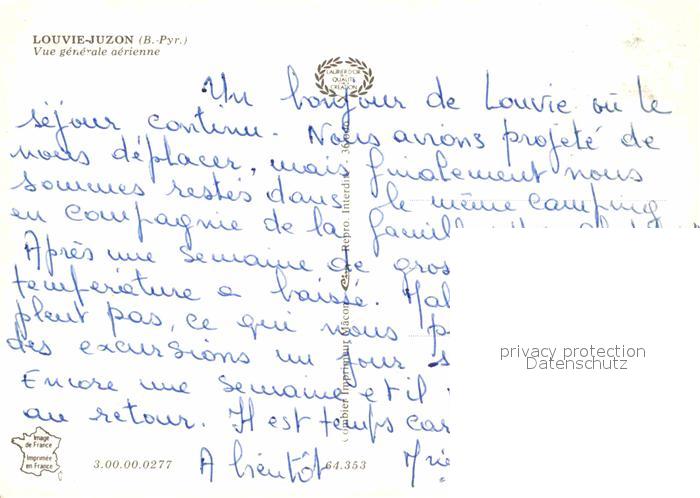 LOUVIE-JUZON (B.-Pyr.)
Vue générale aérienne
LAURIER D'OR
DE LA
QUALITÉ
CRÉATION
Un bonjour de Louvie où le
séjour continu. Nous avions projeté de
nous déplacer, mais finalement nous
sommes restés dans le même camping
en compagnie de la
Après une semaine de gros
température a baissé.
pleut pas, ce qui nous
des excursions un jour
Encore une semaine et il
au retour. Il est temps car
A bientôt
Combier Imprimeur Mâcon Repro. Interdite
privacy protection
Datenschutz
Image
de France
Imprimée
en France
3.00.00.0277
64.353